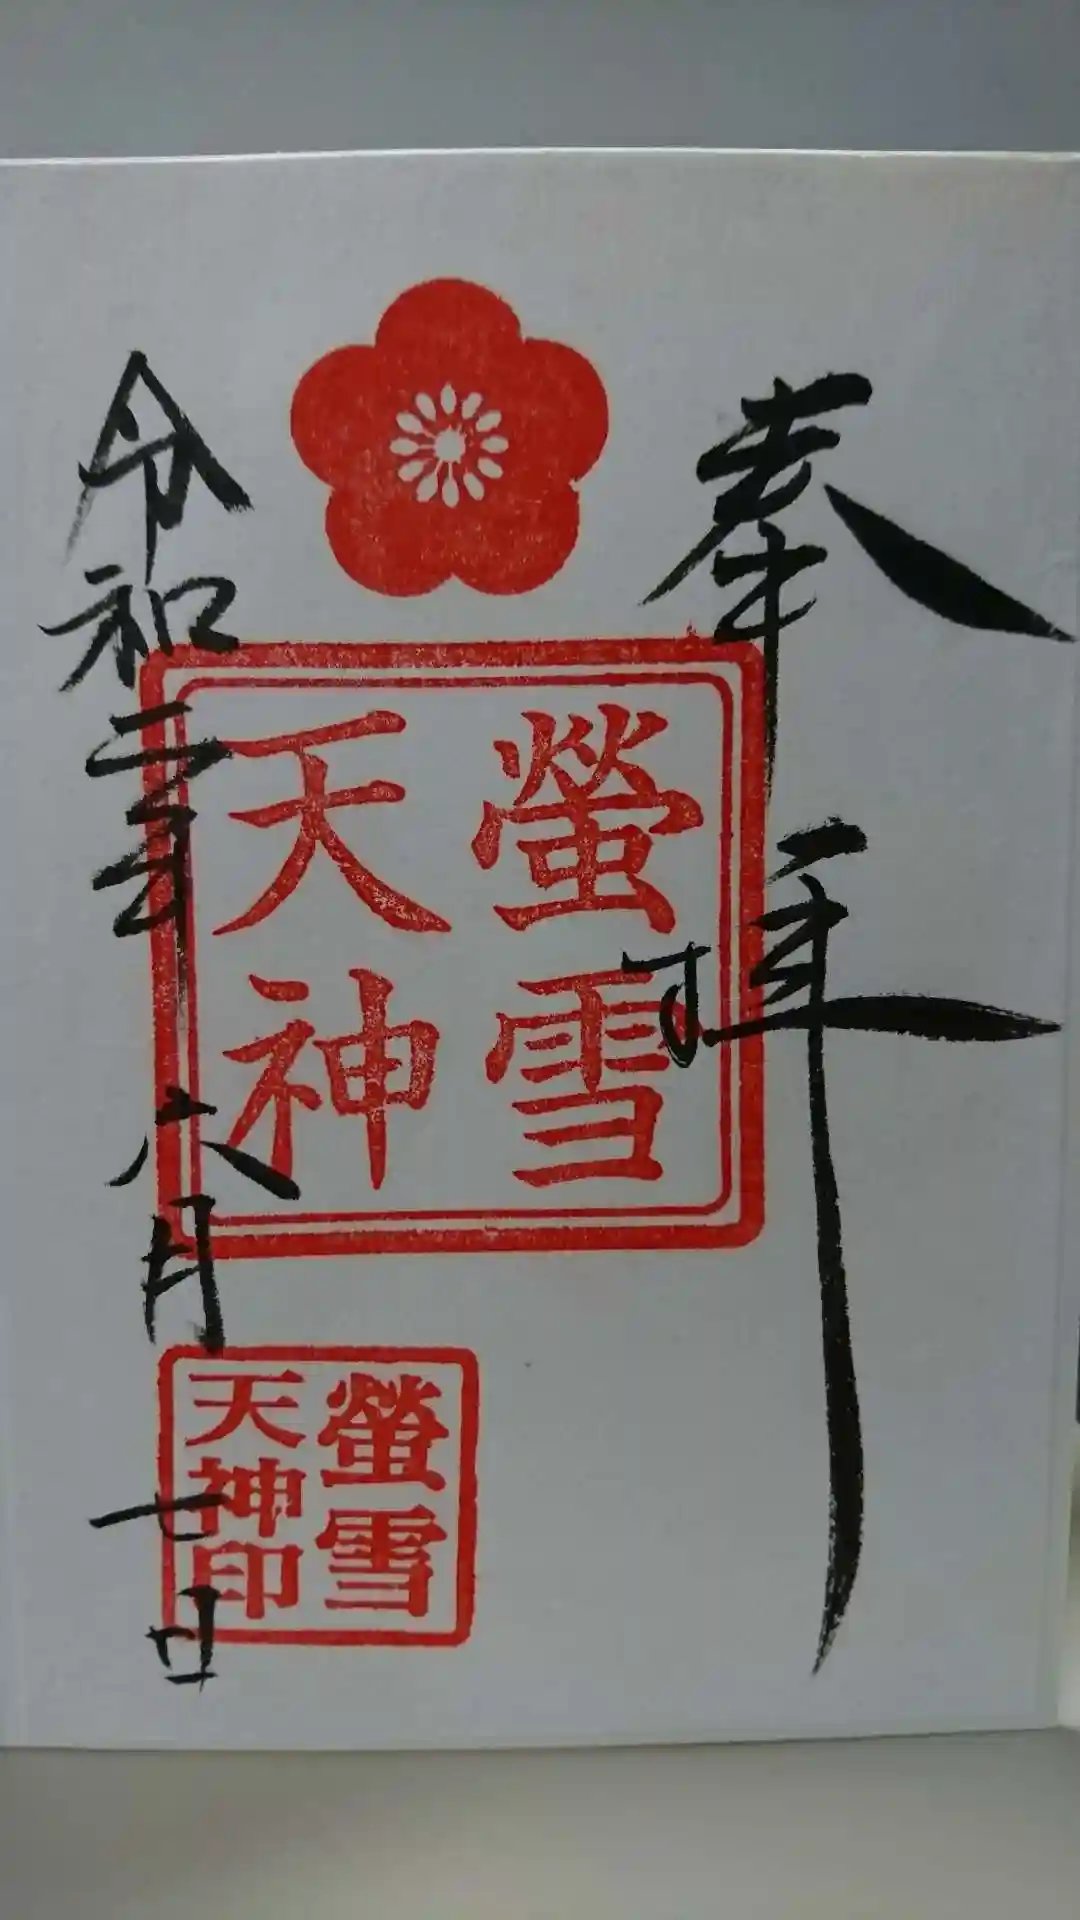 奉拝
螢雪
天神
令和二年六月七日
螢雪
天神印